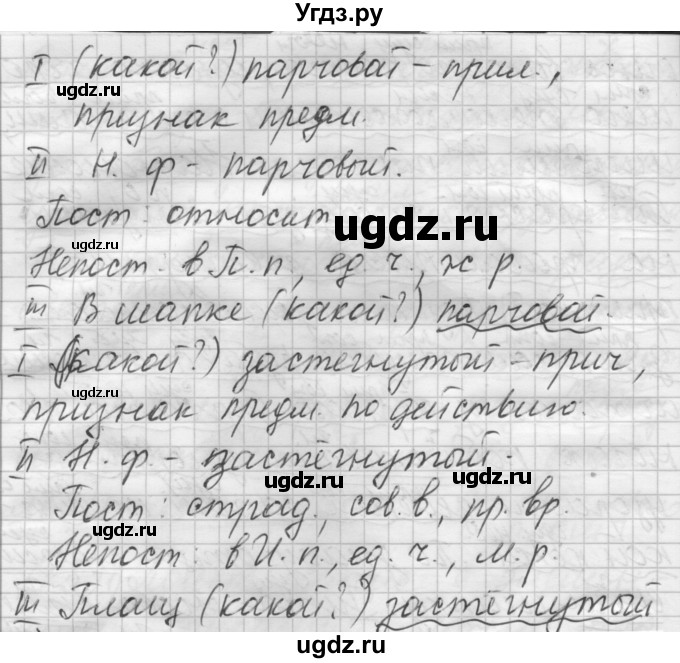 Угдз.ру
I (какой?) парчовой - прил.,
ugdz.ru
признак предм.
II Н. ф - парчовый.
Пост: относит.
ugdz.ru
ugdz.ru
Непост: в П. п, ед. ч., ж р.
III В шапке (какой?) парчовой.
ugdz.ru
I (какой?) застегнутый - прич,
ugdz.ru
признак предм. по действию.
II Н. ф. - застёгнутый.
ugdz.ru
ugdz.ru
Пост: страд, сов. в., пр. вр.
ugdz.ru
Непост: в И. п., ед. ч., м. р.
III Плащ (какой?) застёгнутый
ugdz.ru
ugdz.ru